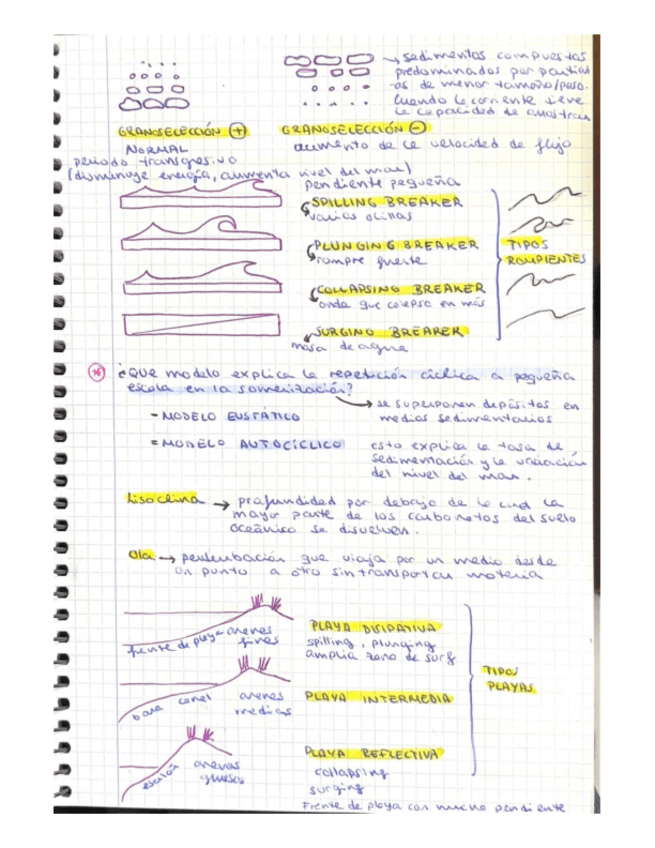 → sedimentos compuestos
predominados por partícul
as de menor tamaño/peso.
Cuando la corriente tiene
la capacidad de arrastrar
GRANOSELECCIÓN (+)
NORMAL
periodo transgresivo
(disminuye energía, aumenta nivel del mar)
GRANOSELECCIÓN (-)
aumento de la velocidad de flujo
pendiente pequeña
SPILLING BREAKER
varias olillas
PLUNGING BREAKER
rompre fuerte
COLLAPSING BREAKER
onda que colapsa en más
SURGING BREAKER
masa de agua
TIPOS
ROMPIENTES
* ¿Que modelo explica la repetición cíclica a pequeña
escala en la somerización?
→ se superponen depósitos en
medios sedimentarios
- MODELO EUSTÁTICO
= MODELO AUTOCÍCLICO
esto explica la tasa de
sedimentación y la variación
del nivel del mar.
Lisoclina → profundidad por debajo de la cual la
mayor parte de los carbonatos del suelo
oceánico se disuelven.
Ola → perturbación que viaja por un medio desde
un punto a otro sin transportar materia
frente de playa arenas
finas
PLAYA DISIPATIVA
spilling, plunging
amplia zona de surf
barra canal arenas
medias
PLAYA INTERMEDIA
TIPOS
PLAYAS
escalón arenas
gruesas
PLAYA REFLECTIVA
collapsing
surging
Frente de playa con mucha pendiente